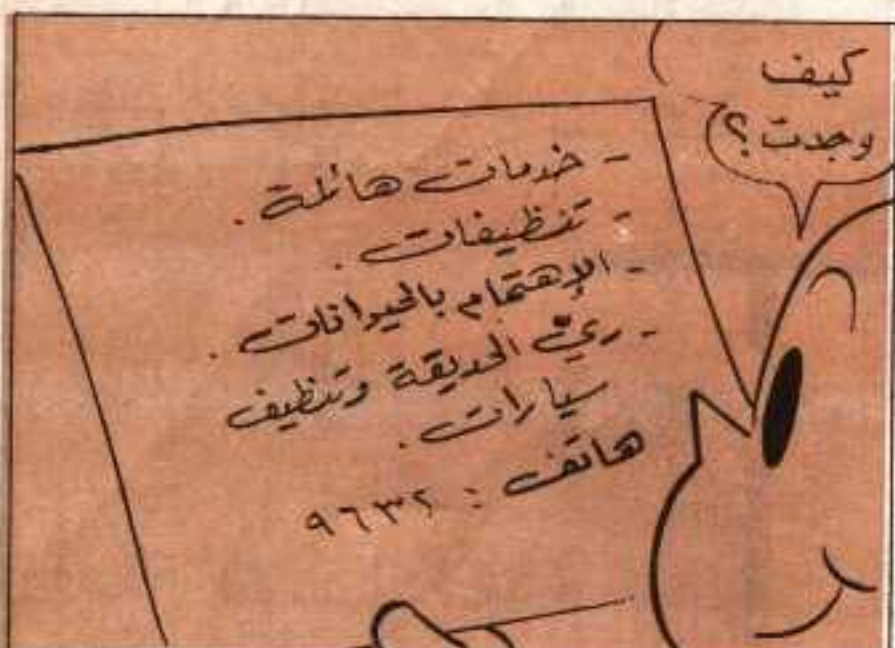 كيف
وجدت؟
- خدمات هائلة.
- تنظيفات.
- الإهتمام بالحيوانات.
- ريّ الحديقة وتنظيف
سيارات.
هاتف: ٩٦٣٢